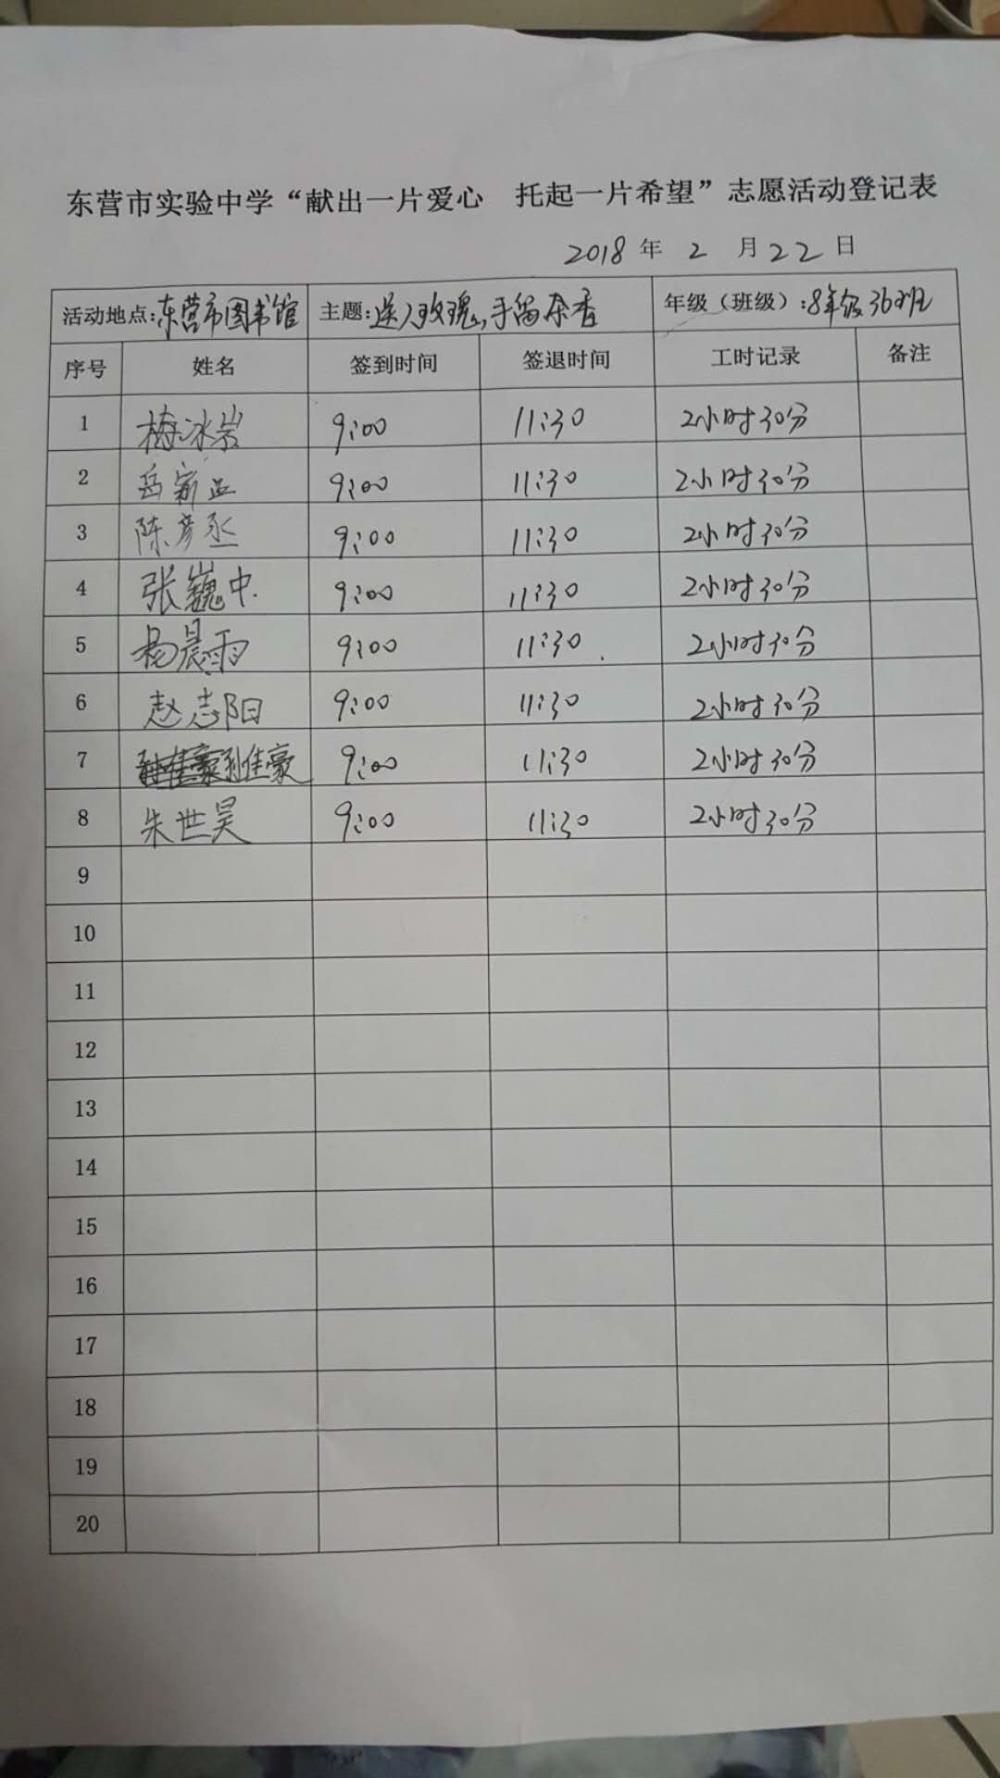 东营市实验中学“献出一片爱心 托起一片希望”志愿活动登记表
2018 年 2 月 22 日
活动地点:东营市图书馆 主题:送人玫瑰,手留余香 年级（班级）:8年级36班
序号 姓名 签到时间 签退时间 工时记录 备注
1 梅冰岩 9:00 11:30 2小时30分
2 岳家 9:00 11:30 2小时30分
3 陈彦丞 9:00 11:30 2小时30分
4 张巍中 9:00 11:30 2小时30分
5 杨晨雨 9:00 11:30 2小时30分
6 赵志阳 9:00 11:30 2小时30分
7 孙佳豪 9:00 11:30 2小时30分
8 朱世昊 9:00 11:30 2小时30分
9
10
11
12
13
14
15
16
17
18
19
20